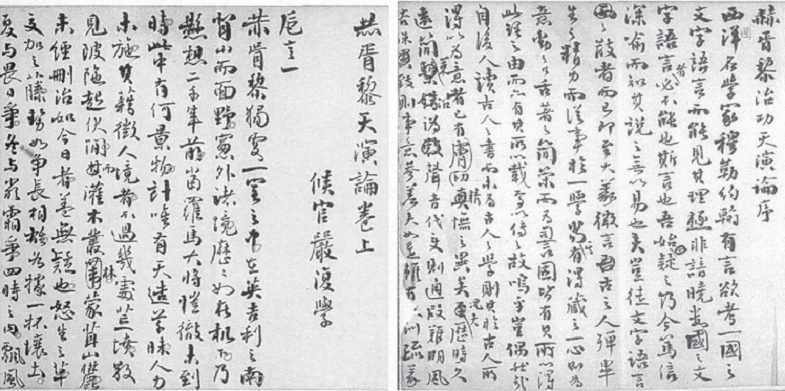 赫胥黎治功天演論序
西洋名學家穆勒約翰有言欲考一國之
文字語言而能見其理極非諳曉數國之文
字語言者必不能也斯言也吾始疑之乃今篤信
深喻而知其說之無以易也夫豈徒文字語言
之散者而已即至大義微言古之人殫畢
生之精力而從事於一學當其有得藏之一心則為
意動之口舌著之簡策而為言固皆有其所以得
此理之由而亦有其所以載焉以傳之故嗚乎豈偶然哉
自後人讀古人之書而未為古人之學則其於古人所
得以為意者已有膚切精憮之異矣更況歷時久
遠簡櫝譌缺聲音代變則通叚難明風
則事意參差夫如是雖有訓疏
赫胥黎天演論卷上
侯官嚴復學
卮言一
赫胥黎獨處一室之中在英吉利之南
背山而面野窗外諸境歷之如在机下乃
懸想二千年前當羅馬大將愷徹未到
時此中有何景物計唯有天造草昧人力
未施其藉徵人境者不過幾處荒墳散
見陂陀起伏間而灌木叢林蒙茸山麓
未經刪治如今日者蓋無疑也怒生之草
交加之藤勢如爭長相雄各據一抔壤土
夏與畏日爭冬與嚴霜爭四時之內飄風